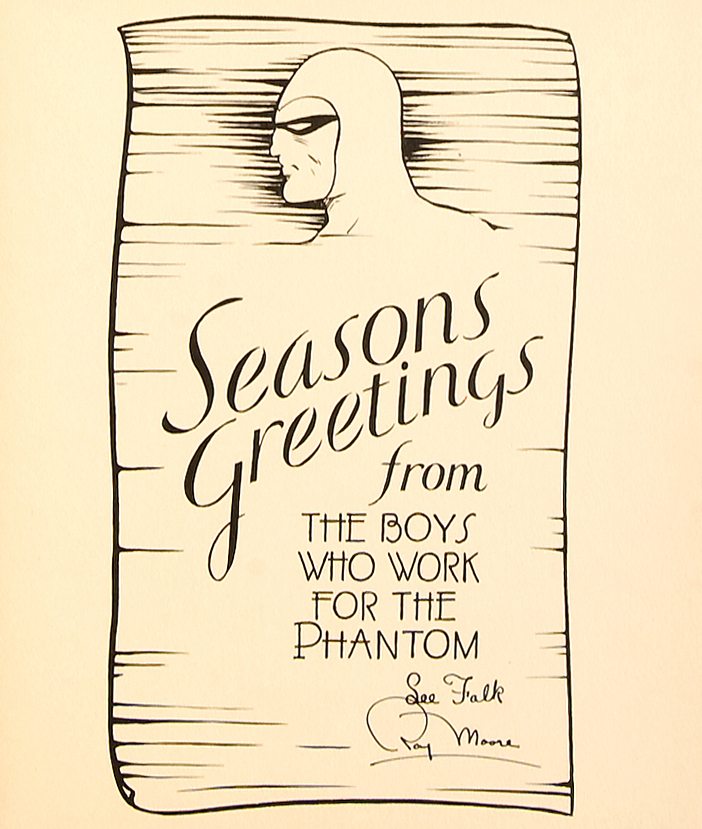 Seasons
Greetings
from
THE BOYS
WHO WORK
FOR THE
PHANTOM
Lee Falk
Ray Moore